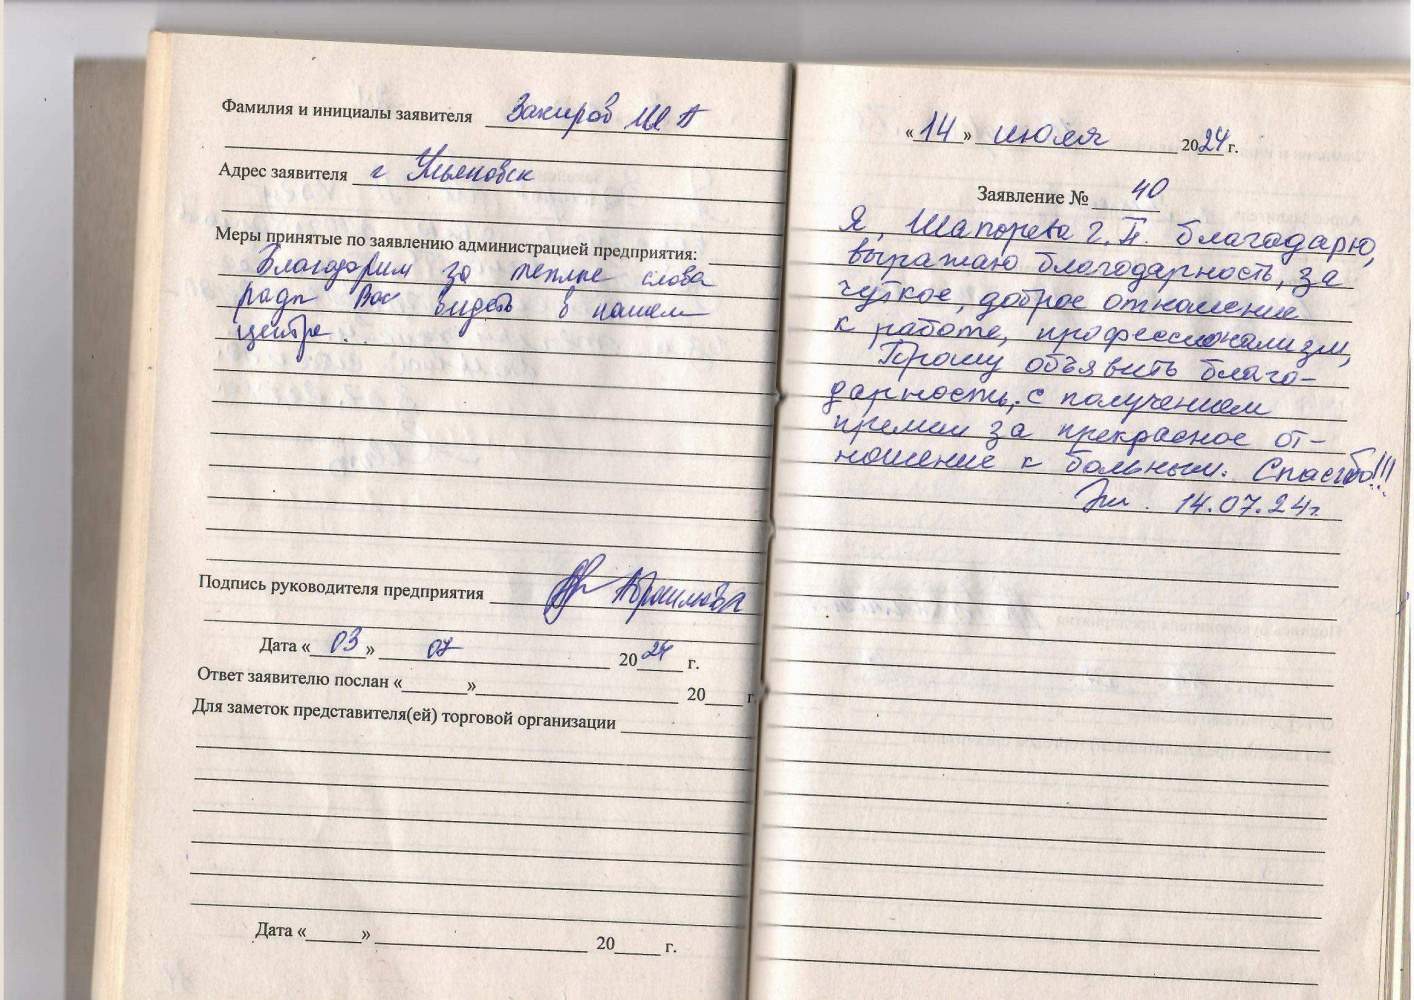 Фамилия и инициалы заявителя Закиров Ш А
Адрес заявителя г Ульяновск
Меры принятые по заявлению администрацией предприятия:
Благодарим за теплые слова
рады Вас видеть в нашем
центре.
Подпись руководителя предприятия
Дата «03» 07 2024 г.
Ответ заявителю послан «» 20 г.
Для заметок представителя(ей) торговой организации
Дата «» 20 г.
«14» июля 2024 г.
Заявление № 40
Я, Шапорева Г. П. благодарю,
выражаю благодарность, за
чуткое, доброе отношение
к работе, профессионализм,
Прошу объявить благо-
дарность, с получением
премии за прекрасное от-
ношение к больным. Спасибо!!!
14.07.24г.